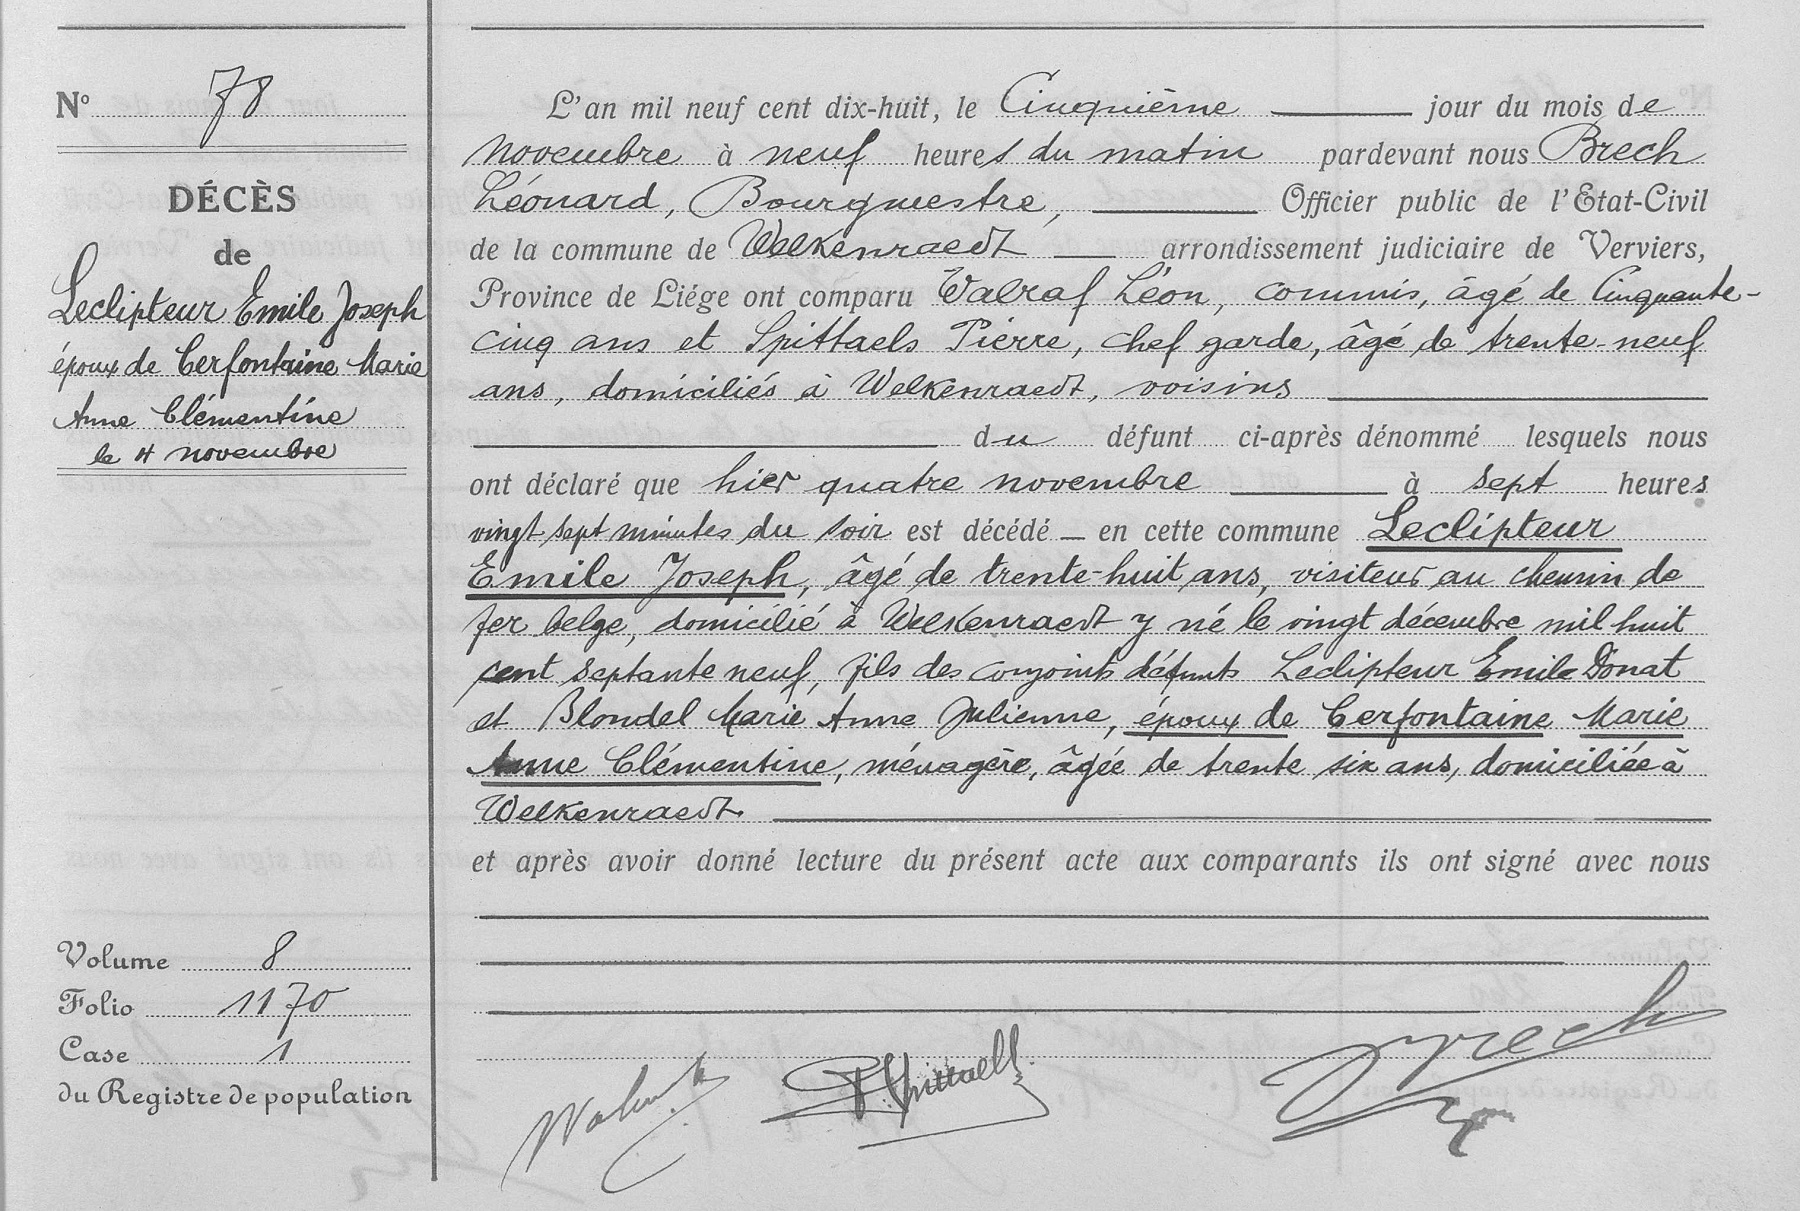 N° 78
DÉCÈS
de
Leclipteur Emile Joseph
époux de Cerfontaine Marie
Anne Clémentine
le 4 novembre
Volume 8
Folio 1170
Case 1
du Registre de population
L'an mil neuf cent dix-huit, le Cinquième jour du mois de
novembre à neuf heures du matin pardevant nous Brech
Léonard, Bourgmestre, Officier public de l'Etat-Civil
de la commune de Welkenraedt arrondissement judiciaire de Verviers,
Province de Liége ont comparu Walraf Léon, commis, âgé de Cinquante-
cinq ans et Spittaels Pierre, chef garde, âgé de trente-neuf
ans, domiciliés à Welkenraedt, voisins
du défunt ci-après dénommé lesquels nous
ont déclaré que hier quatre novembre à sept heures
vingt sept minutes du soir est décédé en cette commune Leclipteur
Emile Joseph, âgé de trente-huit ans, visiteur au chemin de
fer belge, domicilié à Welkenraedt y né le vingt décembre mil huit
cent septante neuf, fils des conjoints défunts Leclipteur Emile Donat
et Blondel Marie Anne Julienne, époux de Cerfontaine Marie
Anne Clémentine, ménagère, âgée de trente six ans, domiciliée à
Welkenraedt.
et après avoir donné lecture du présent acte aux comparants ils ont signé avec nous
P. Spittaels Brech